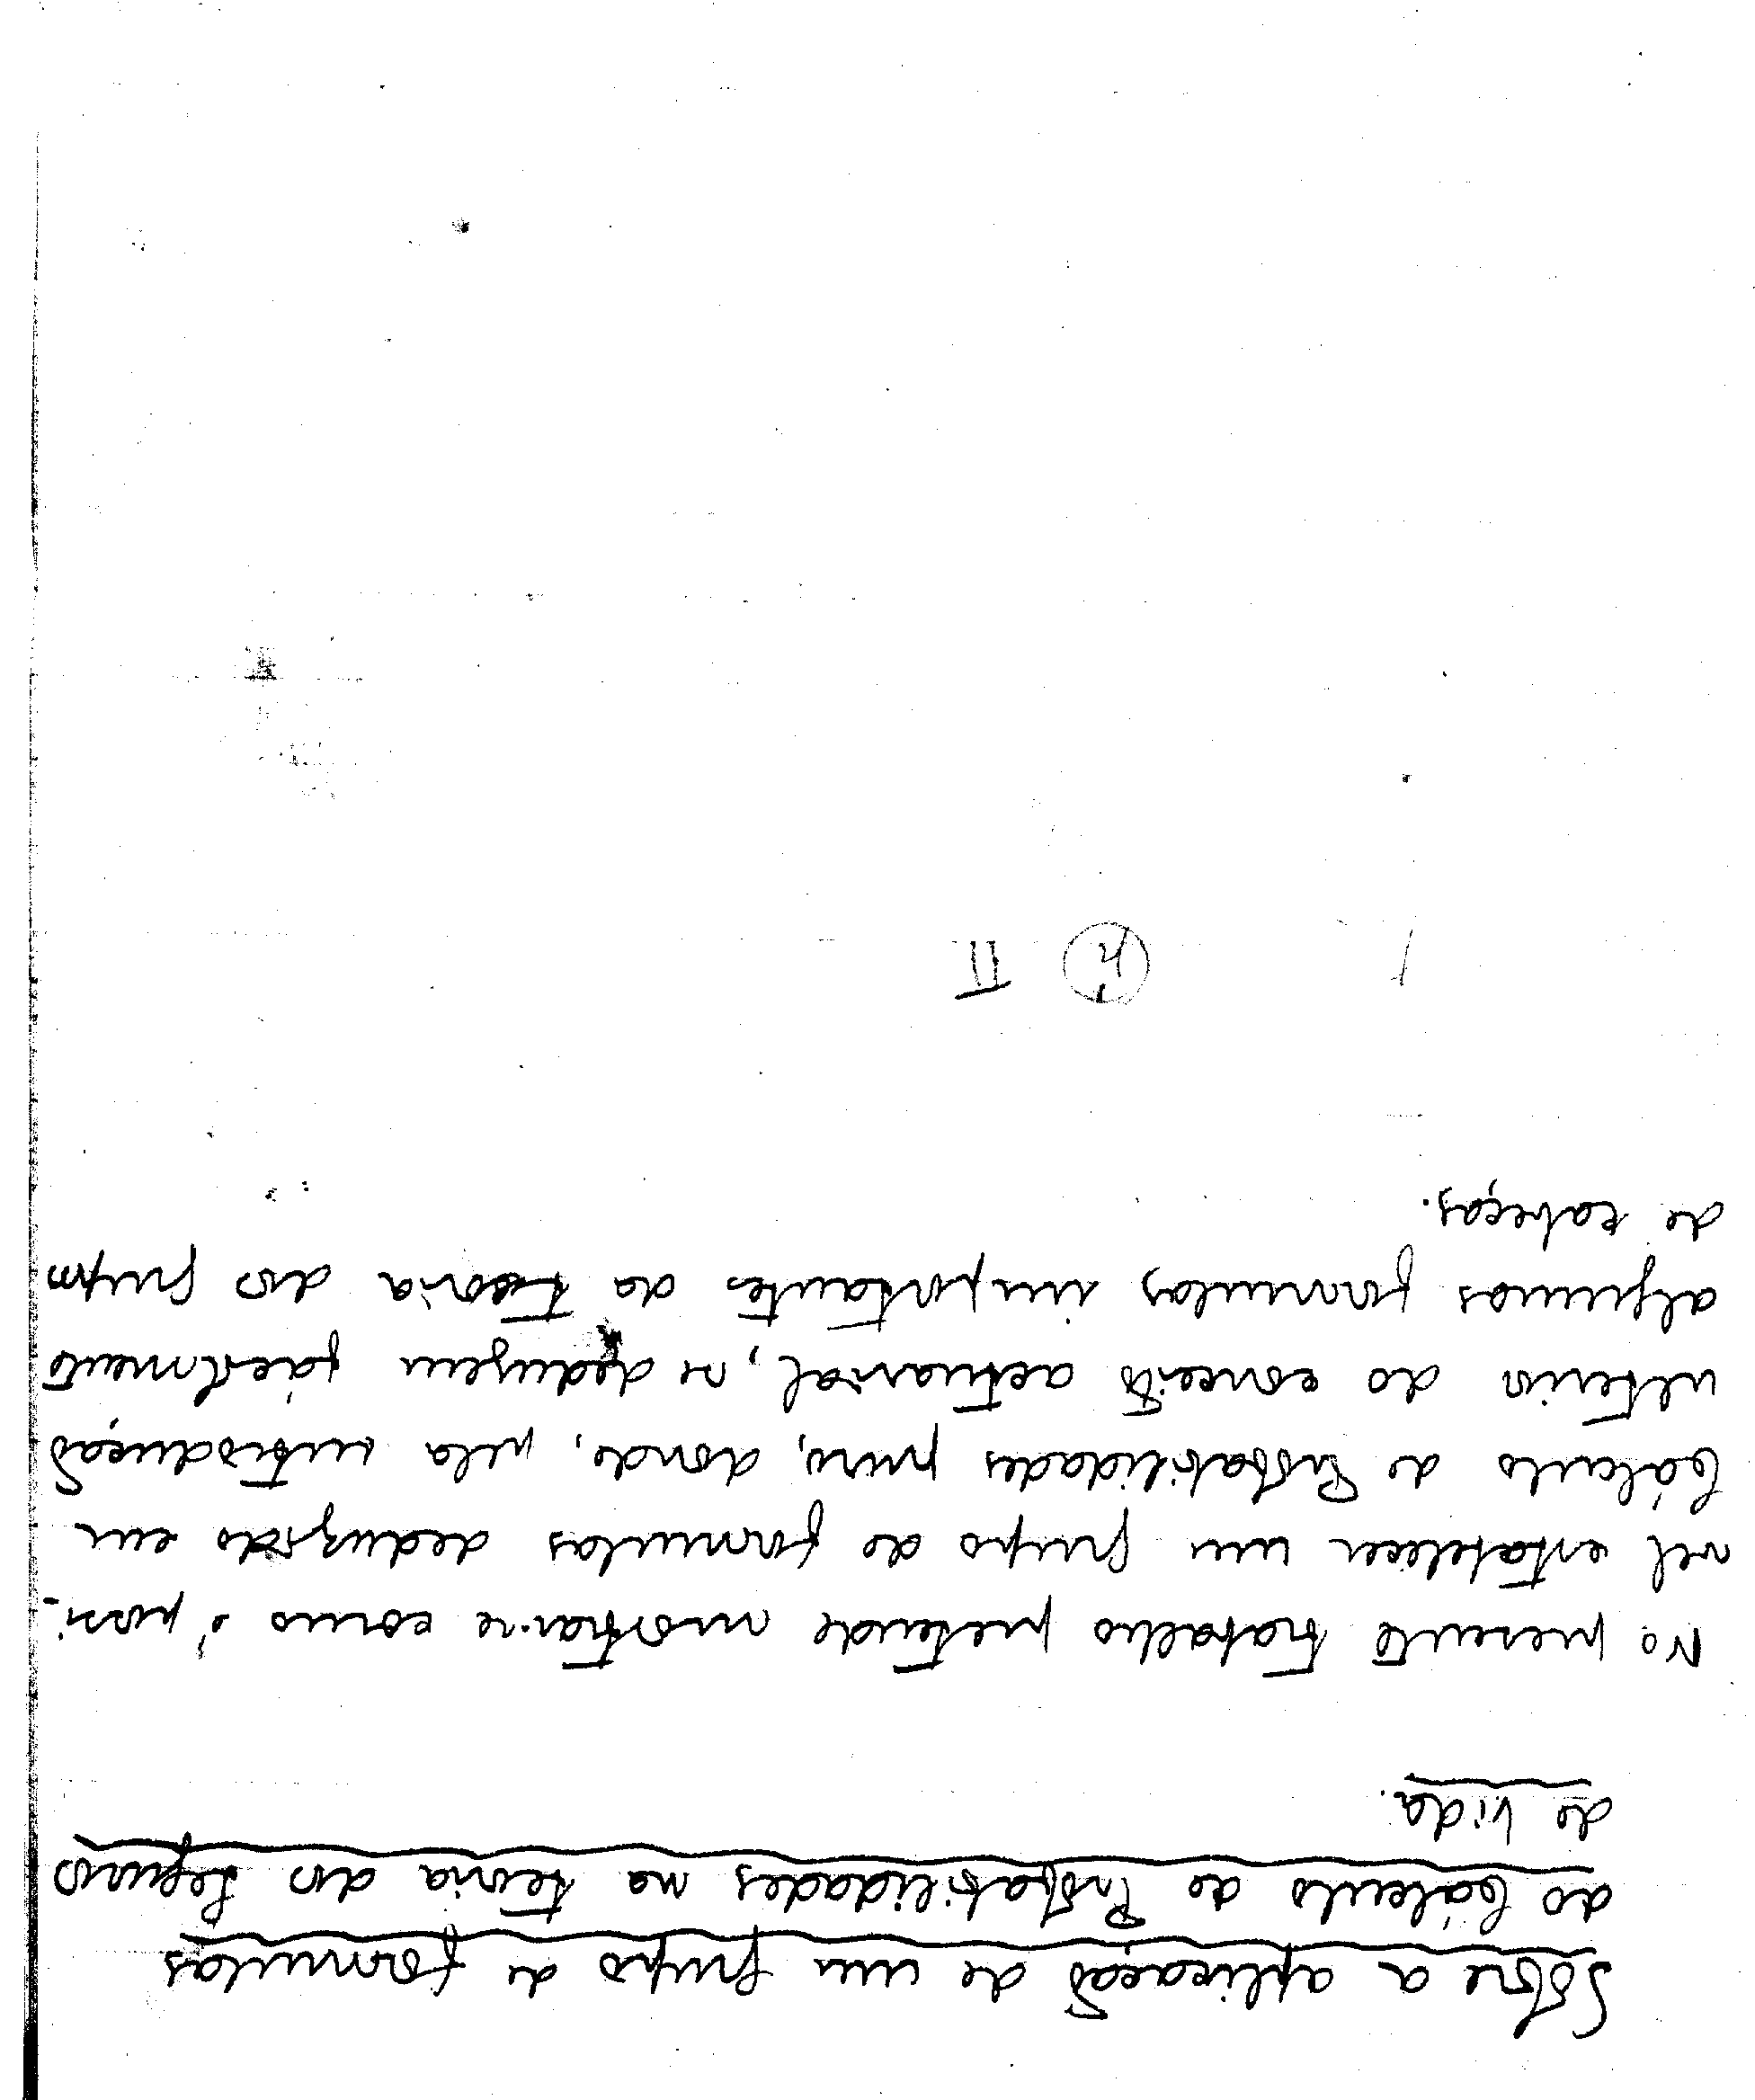 Sôbre a aplicação de um grupo de formulas
do Cálculo de Probabilidades na teoria dos Seguros
de Vida.
No presente trabalho pretende mostrar-se como é possi-
vel estabelecer um grupo de formulas deduzido em
Cálculo de Probabilidades puro, donde, pela introdução
ulterior do conceito actuarial, se deduzem fácilmente
algumas formulas importantes da Teoria dos grupos
de cabeças.
II